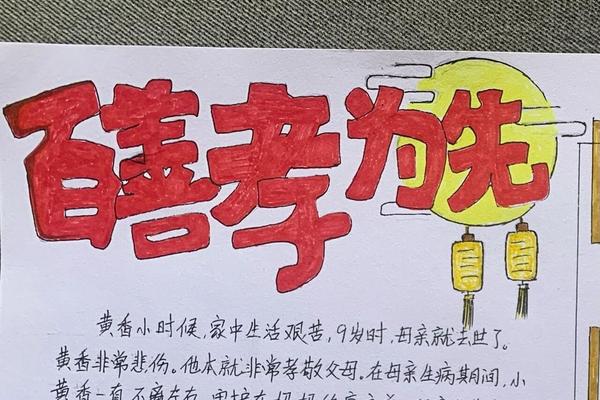 百善孝为先
黄香小时候,家中生活艰苦,9岁时,母亲就去世了。
黄香非常悲伤。他本就非常孝敬父母。在母亲生病期间,小
黄香一直不离左右,